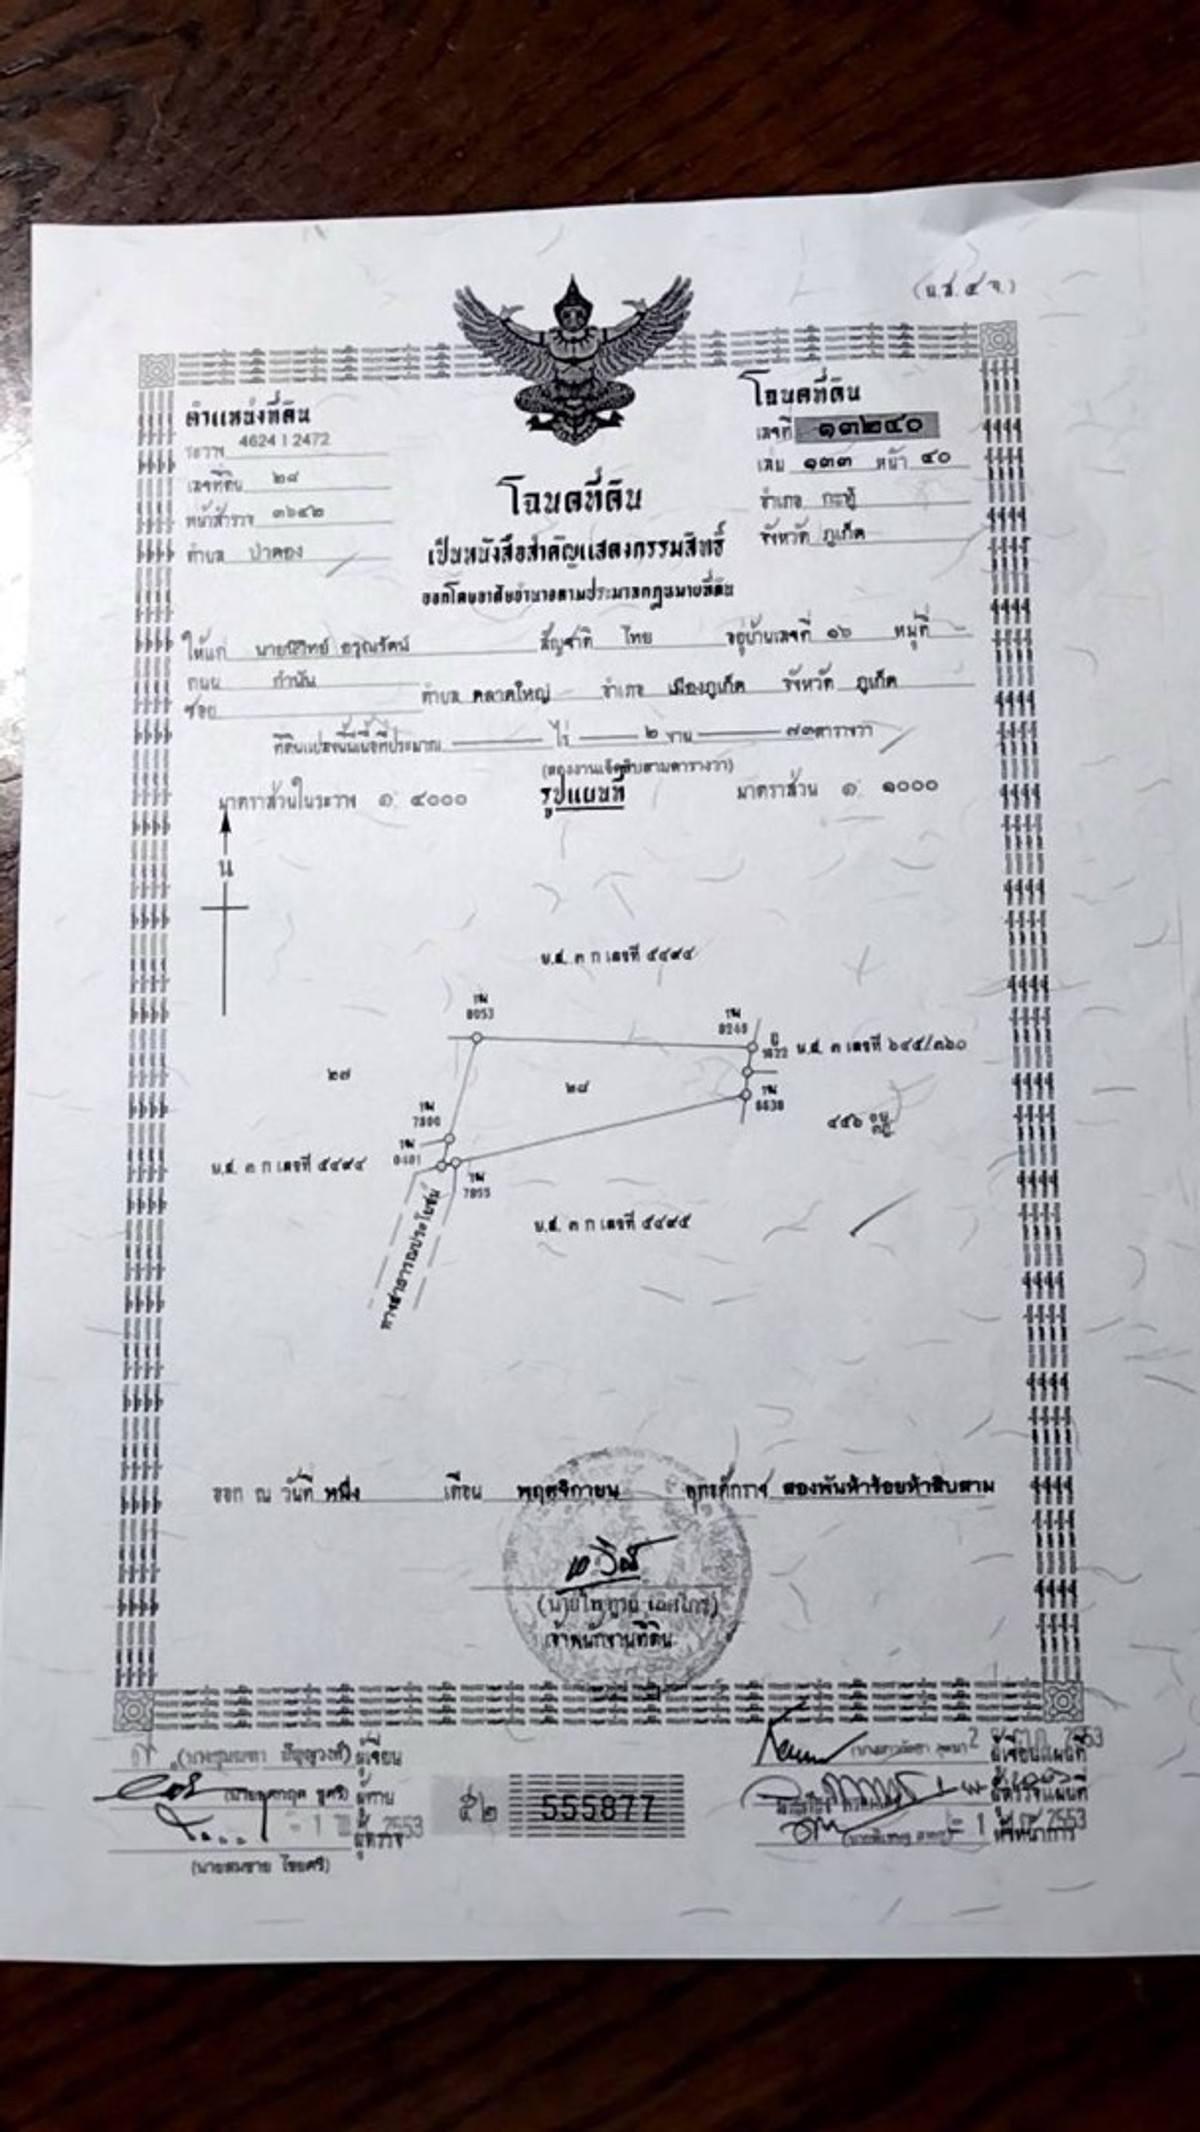 (น.ส.๔ จ.)
ตำแหน่งที่ดิน
ระวาง 4624 I 2472
เลขที่ดิน ๒๘
หน้าสำรวจ ๓๖๔๒
ตำบล ป่าตอง
โฉนดที่ดิน
เลขที่ ๑๓๒๔๐
เล่ม ๑๓๓ หน้า ๔๐
อำเภอ กะทู้
จังหวัด ภูเก็ต
โฉนดที่ดิน
เป็นหนังสือสำคัญแสดงกรรมสิทธิ์
ออกโดยอาศัยอำนาจตามประมวลกฎหมายที่ดิน
ให้แก่ อรุณรัตน์ สัญชาติ ไทย อยู่บ้านเลขที่ ๑๖ หมู่ที่
ถนน กำนัน
ซอย ตำบล ตลาดใหญ่ อำเภอ เมืองภูเก็ต จังหวัด ภูเก็ต
ที่ดินแปลงนี้มีเนื้อที่ประมาณ ไร่ ๒ งาน ๗๓ ตารางวา
(สองงานเจ็ดสิบสามตารางวา)
มาตราส่วนในระวาง ๑: ๔๐๐๐ รูปแผนที่ มาตราส่วน ๑: ๑๐๐๐
น
น.ส. ๓ ก เลขที่ ๕๔๙๔
8053
๒๗
๒๘
น.ส. ๓ เลขที่ ๖๔๕/๓๖๐
๔๕๖
น.ส. ๓ ก เลขที่ ๕๔๙๔
7855
น.ส. ๓ ก เลขที่ ๕๔๙๕
ทางสาธารณประโยชน์
ออก ณ วันที่ หนึ่ง เดือน พฤศจิกายน พุทธศักราช สองพันห้าร้อยห้าสิบสาม
เจ้าพนักงานที่ดิน
ผู้เขียน
ผู้ทาน
2553 ผู้ตรวจ
(นายสมชาย ไชยศรี)
๕๒ 555877
2553 ผู้เขียนแผนที่
ผู้ตรวจแผนที่
2553